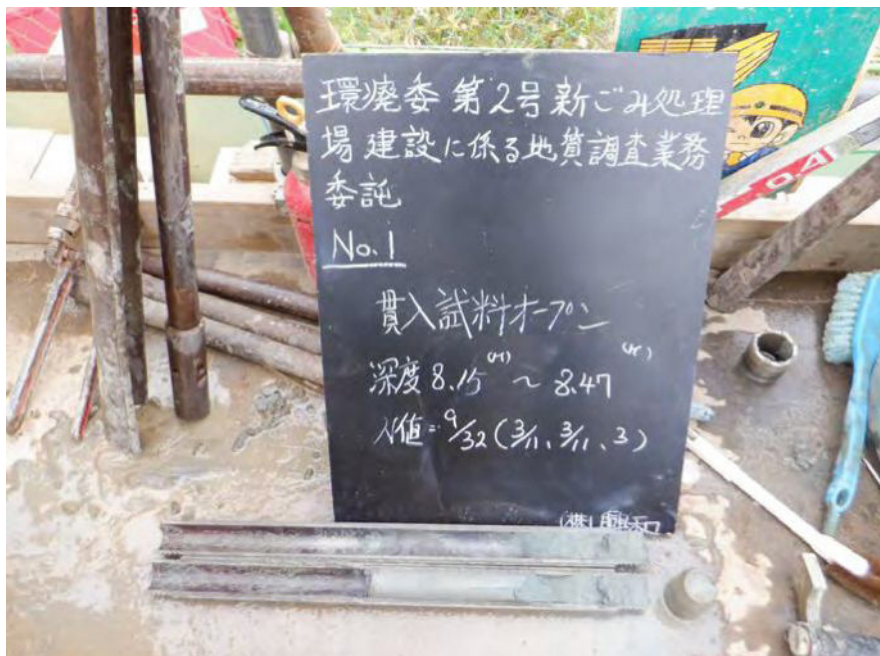 環廃委 第2号新ごみ処理
場建設に係る地質調査業務
委託
No.1
貫入試料オープン
深度 8.15(m) ~ 8.47(m)
N値=9/32(3/11、3/11、3)
(株)興和
0.4